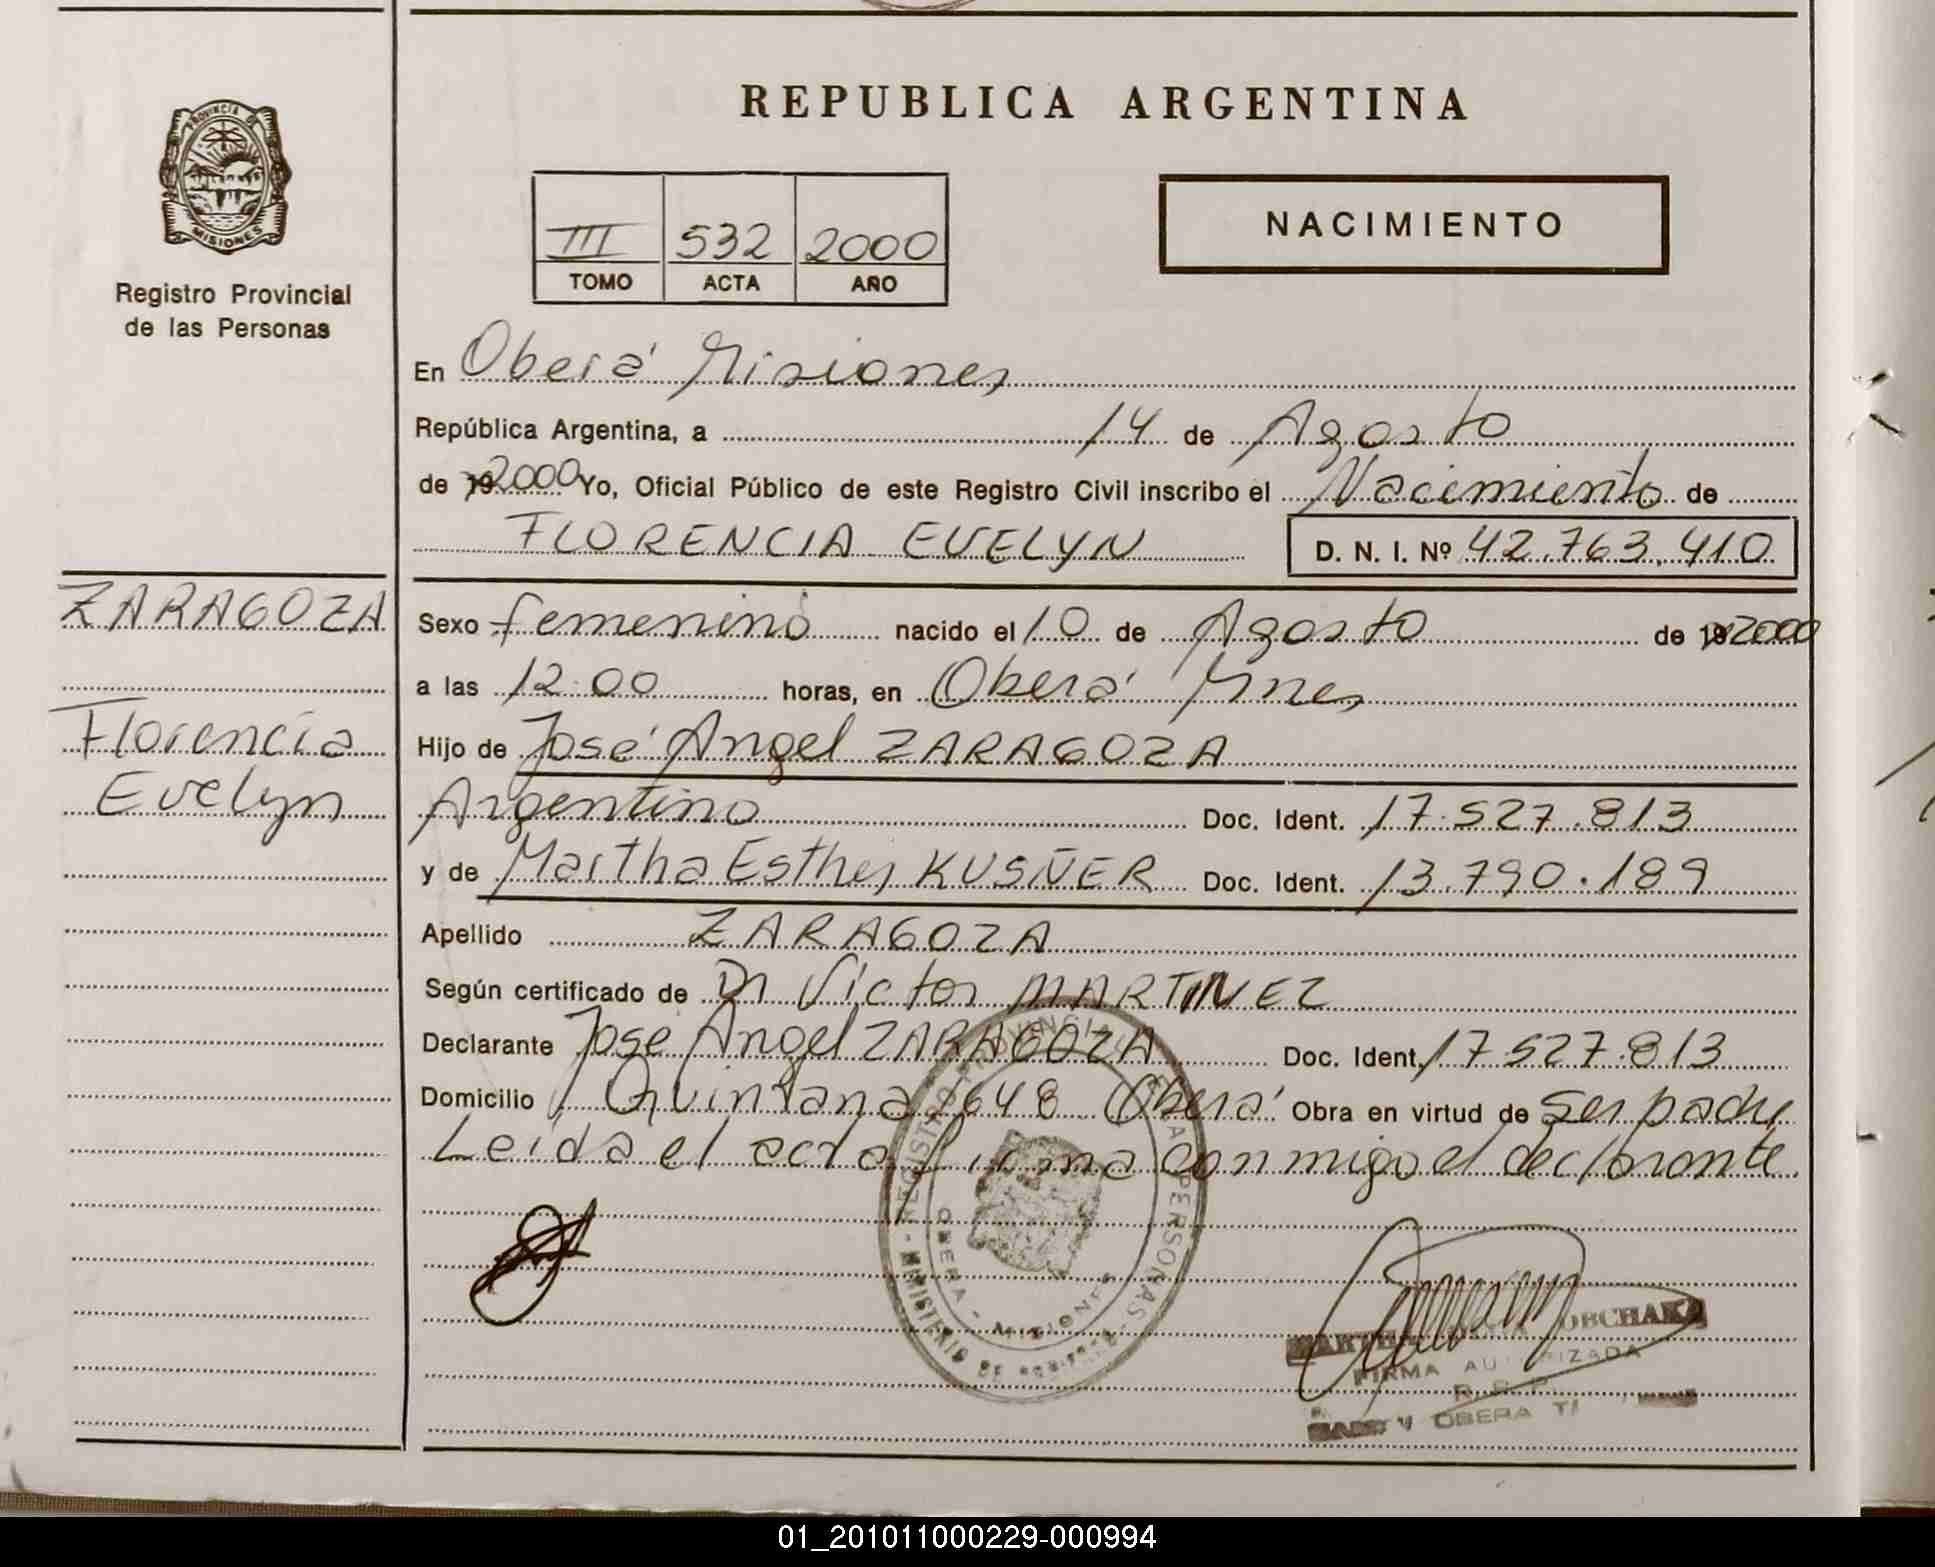 PROVINCIA DE
MISIONES
Registro Provincial
de las Personas
ZARAGOZA
Florencia
Evelyn
REPUBLICA ARGENTINA
III 532 2000
TOMO ACTA AÑO
NACIMIENTO
En Oberá Misiones
República Argentina, a 14 de Agosto
de 19 2000 Yo, Oficial Público de este Registro Civil inscribo el Nacimiento de
FLORENCIA EVELYN D. N. I. Nº 42.763.410
Sexo femenino nacido el 10 de Agosto de 19 2000
a las 12:00 horas, en Oberá Mnes
Hijo de José Angel ZARAGOZA
Argentino Doc. Ident. 17.527.813
y de Martha Esther KUSÑER Doc. Ident. 13.790.189
Apellido ZARAGOZA
Según certificado de Dr Víctor MARTINEZ
Declarante Jose Angel ZARAGOZA Doc. Ident. 17.527.813
Domicilio Quintana 648 Oberá Obra en virtud de ser padre
Leída el acta firma conmigo el declarante
REGISTRO PROVINCIAL DE LAS PERSONAS
OBERA - MISIONES
MINISTERIO DE GOBIERNO
FIRMA AUTORIZADA
R. P. P.
OBERA
01_201011000229-000994